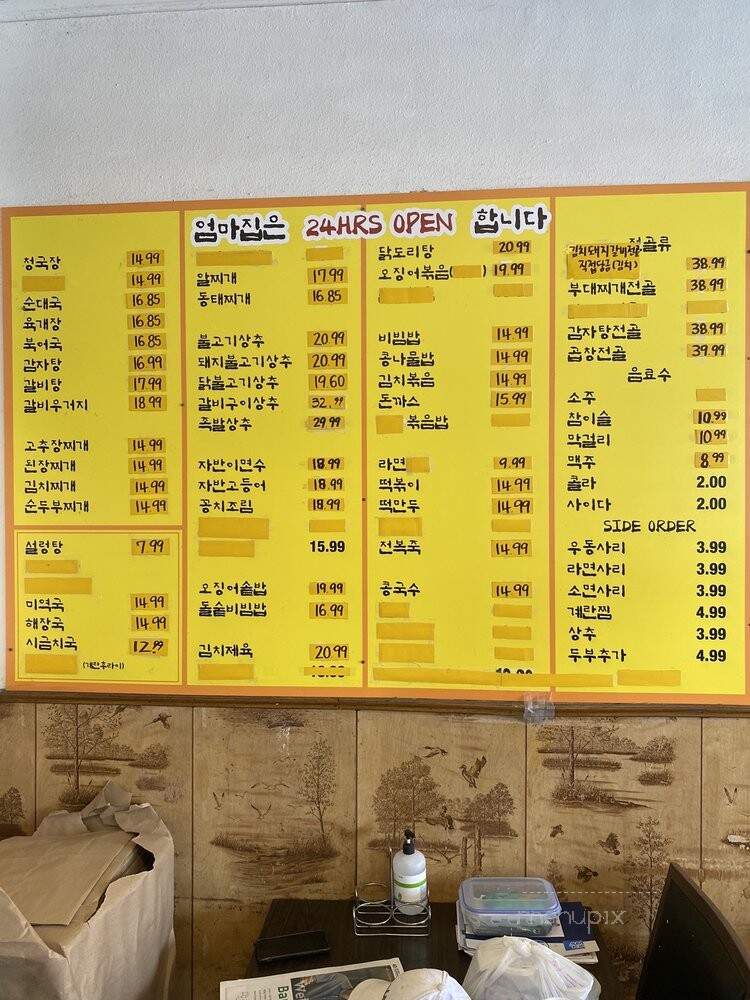 엄마집은 24HRS OPEN 합니다
청국장 14.99
14.99
순대국 16.85
육개장 16.85
북어국 16.85
감자탕 16.99
갈비탕 17.99
갈비우거지 18.99
고추장찌개 14.99
된장찌개 14.99
김치찌개 14.99
순두부찌개 14.99
설렁탕 7.99
미역국 14.99
해장국 14.99
시금치국 12.99
(계란후라이)
알찌개 17.99
동태찌개 16.85
불고기상추 20.99
돼지불고기상추 20.99
닭불고기상추 19.60
갈비구이상추 32.99
족발상추 29.99
자반이면수 18.99
자반고등어 18.99
꽁치조림 18.99
15.99
오징어솥밥 19.99
돌솥비빔밥 16.99
김치제육 20.99
닭도리탕 20.99
오징어볶음( ) 19.99
비빔밥 14.99
콩나물밥 14.99
김치볶음 14.99
돈까스 15.99
볶음밥
라면 9.99
떡볶이 14.99
떡만두 14.99
전복죽 14.99
콩국수 14.99
전골류
김치돼지갈비전골
직접담금(김치) 38.99
부대찌개전골 38.99
감자탕전골 38.99
곱창전골 39.99
음료수
소주
참이슬 10.99
막걸리 10.99
맥주 8.99
콜라 2.00
사이다 2.00
SIDE ORDER
우동사리 3.99
라면사리 3.99
소면사리 3.99
계란찜 4.99
상추 3.99
두부추가 4.99
menupix